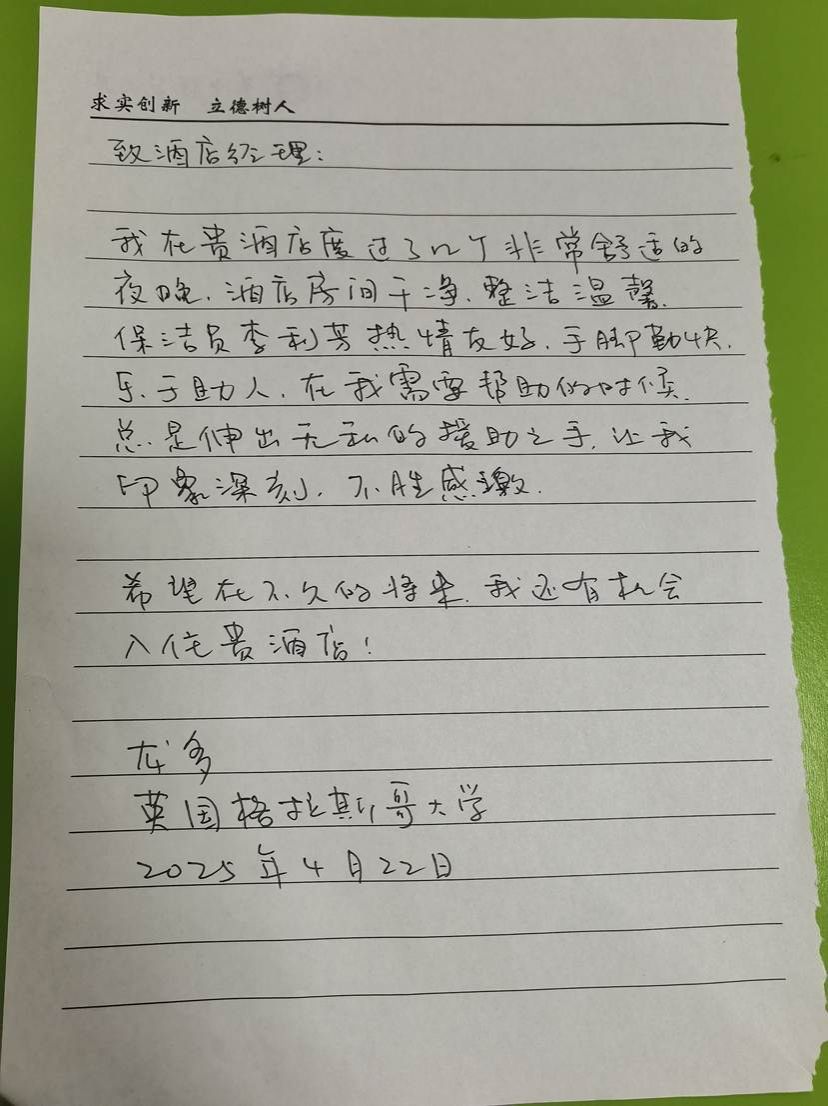 求实创新 立德树人
致酒店经理:
我在贵酒店度过了几个非常舒适的
夜晚.酒店房间干净.整洁温馨.
保洁员李利芳热情友好.手脚勤快.
乐于助人.在我需要帮助的时候.
总是伸出无私的援助之手.让我
印象深刻.不胜感激.
希望在不久的将来.我还有机会
入住贵酒店!
英国格拉斯哥大学
2025年4月22日